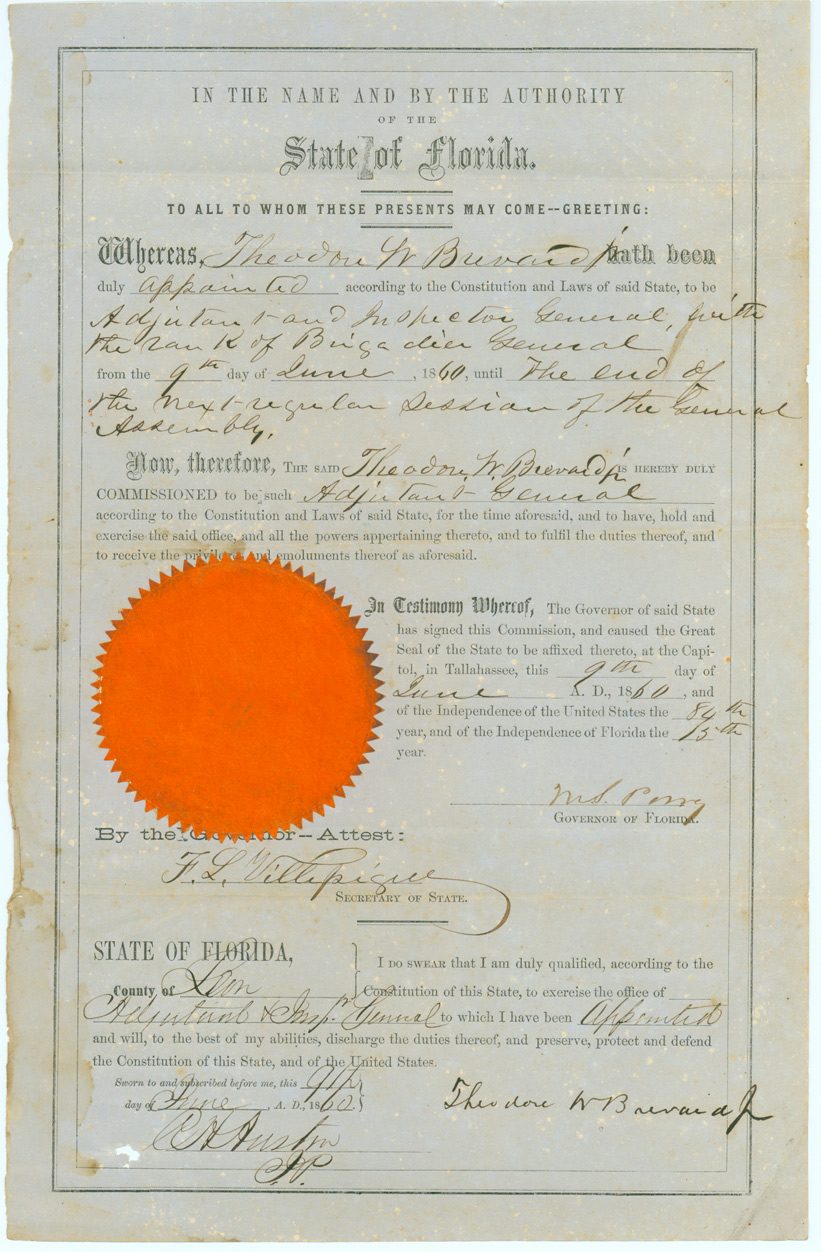 IN THE NAME AND BY THE AUTHORITY
OF THE
State of Florida.
TO ALL TO WHOM THESE PRESENTS MAY COME--GREETING:
Whereas, Theodore W Brevard Jr hath been
duly appointed according to the Constitution and Laws of said State, to be
Adjutant and Inspector General, with
the rank of Brigadier General
from the 9th day of June, 1860, until The end of
the next regular session of the General
Assembly.
Now, therefore, THE SAID Theodore W. Brevard Jr IS HEREBY DULY
COMMISSIONED to be such Adjutant General
according to the Constitution and Laws of said State, for the time aforesaid, and to have, hold and
exercise the said office, and all the powers appertaining thereto, and to fulfil the duties thereof, and
to receive the privileges and emoluments thereof as aforesaid.
In Testimony Whereof, The Governor of said State
has signed this Commission, and caused the Great
Seal of the State to be affixed thereto, at the Capi-
tol, in Tallahassee, this 9th day of
June A. D., 1860, and
of the Independence of the United States the 84th
year, and of the Independence of Florida the 15th
year.
M. S. Perry
GOVERNOR OF FLORIDA.
By the Governor--Attest:
F. L. Villepigue
SECRETARY OF STATE.
STATE OF FLORIDA,
County of Leon
I DO SWEAR that I am duly qualified, according to the
Constitution of this State, to exercise the office of
Adjutant & Insp. General to which I have been Appointed
and will, to the best of my abilities, discharge the duties thereof, and preserve, protect and defend
the Constitution of this State, and of the United States.
Sworn to and subscribed before me, this 9th
day of June, A. D., 1860.
Theodore W Brevard Jr
Austin
J.P.